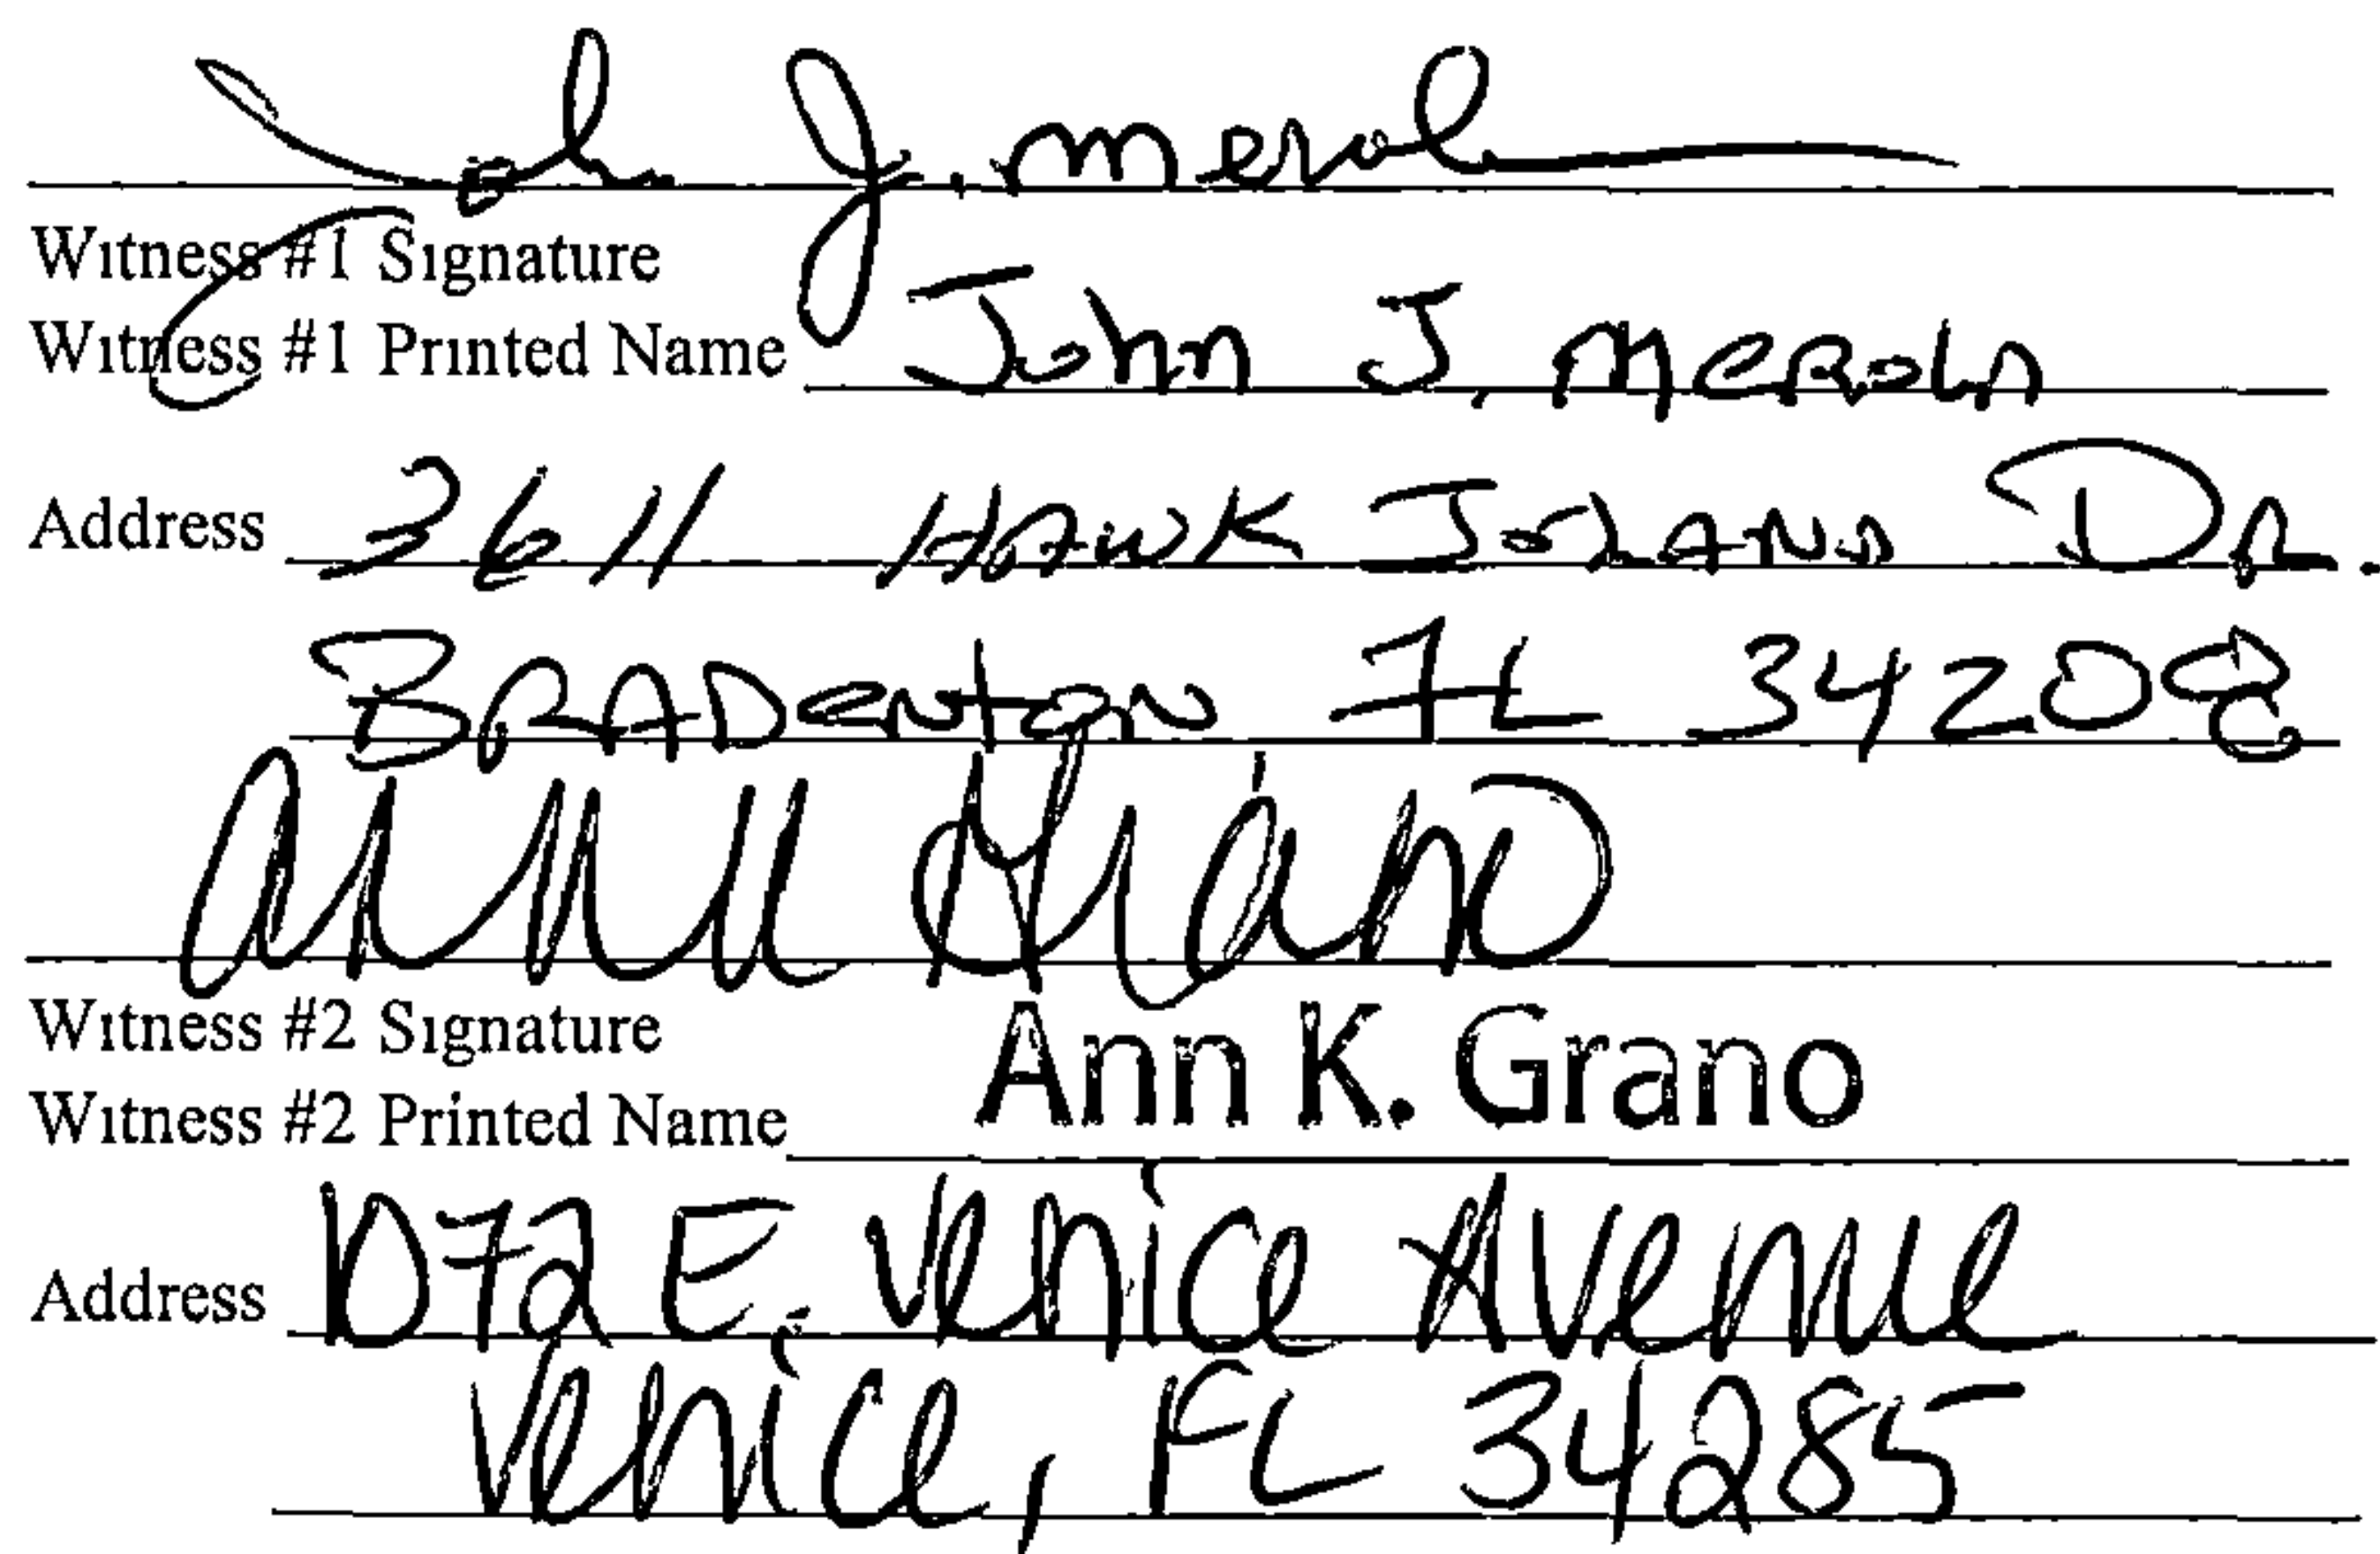 John J. Merola
Witness #1 Signature
Witness #1 Printed Name John J. Merola
Address 3611 HAWK ISLAND DR.
BRADENTON FL 34208
Ann Grano
Witness #2 Signature
Witness #2 Printed Name Ann K. Grano
Address 1072 E. Venice Avenue
Venice, FL 34285